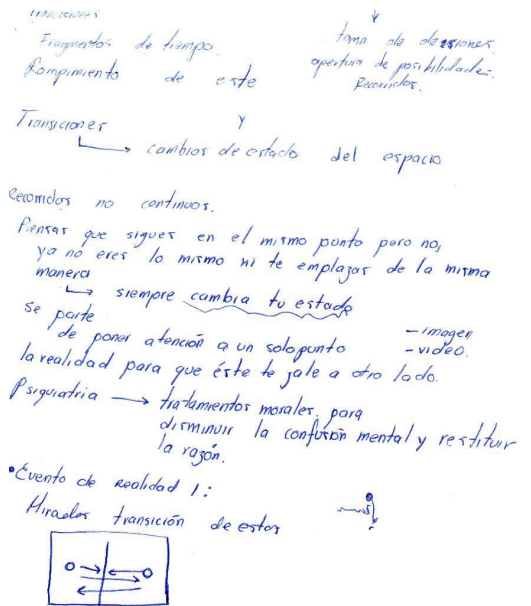 Fragmentos de tiempo.
toma de desiones.
apertura de posibilidades.
Recorridos.
Rompimiento de este
Transiciones y
cambios de estado del espacio
Recorridos no continuos.
Piensas que sigues en el mismo punto pero no,
ya no eres lo mismo ni te emplazas de la misma
manera
siempre cambia tu estado
se parte
de poner atención a un solo punto
- imagen
- video.
la realidad para que éste te jale a otro lado.
Psiquiatria → tratamientos morales, para
disminuir la confusión mental y restituir
la razón.
• Evento de Realidad 1:
Miradas transición de estas